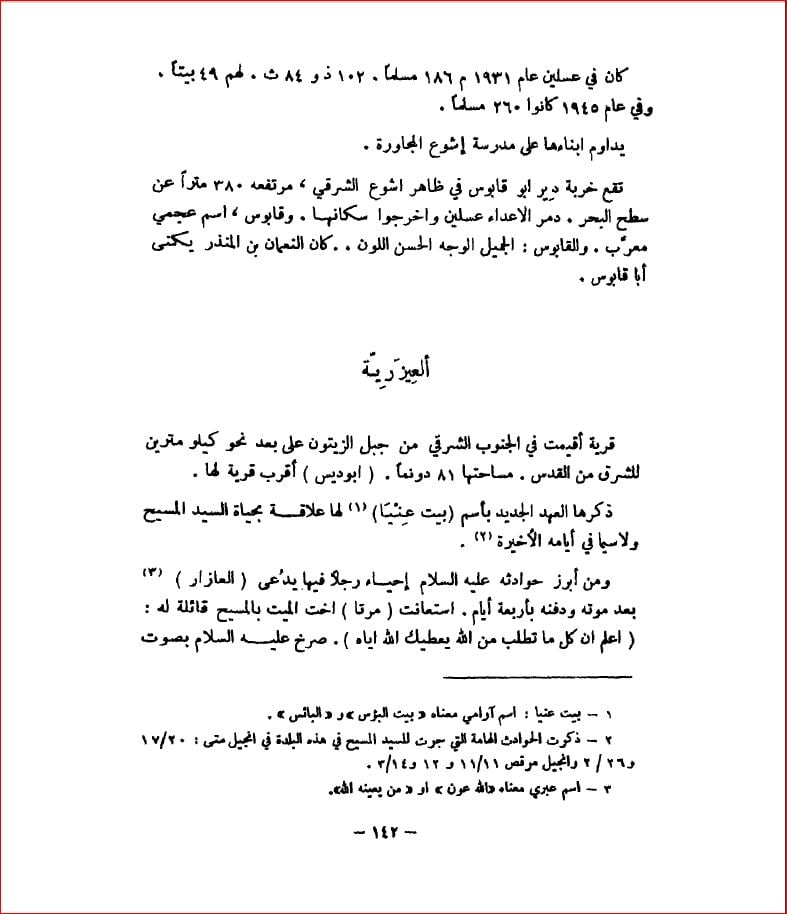 كان في عسلين عام ١٩٣١ م ١٨٦ مسلماً . ١٠٢ ذ و ٨٤ ث . لهم ٤٩ بيتاً .
وفي عام ١٩٤٥ كانوا ٢٦٠ مسلماً .
يداوم ابناءها على مدرسة إشوع المجاورة .
تقع خربة دير ابو قابوس في ظاهر اشوع الشرقي ، مرتفعه ٣٨٠ متراً عن
سطح البحر . دمر الاعداء عسلين واخرجوا سكانها . وقابوس ، اسم عجمي
معرَّب . وللقابوس : الجميل الوجه الحسن اللون . . كان النعمان بن المنذر يكنى
أبا قابوس .
ألعِيزَرِيّة
قرية أقيمت في الجنوب الشرقي من جبل الزيتون على بعد نحو كيلو مترين
للشرق من القدس . مساحتها ٨١ دونماً . ( ابوديس ) أقرب قرية لها .
ذكرها العهد الجديد بأسم (بيت عِنْيَا) (١) لها علاقة بحياة السيد المسيح
ولاسيما في أيامه الأخيرة (٢) .
ومن أبرز حوادثه عليه السلام إحياء رجلاً فيها يدُعى ( العازار ) (٣)
بعد موته ودفنه بأربعة أيام . استعانت ( مرتا ) اخت الميت بالمسيح قائلة له :
( اعلم ان كل ما تطلب من الله يعطيك الله اياه ) . صرخ عليه السلام بصوت
١ – بيت عنيا : اسم آرامي معناه « بيت البؤس » و « البائس » .
٢ – ذكرت الحوادث الهامة التي جرت للسيد المسيح في هذه البلدة في انجيل متى : ١٧/٢٠
و٢٦ / ٢ وانجيل مرقص ١١/١١ و ١٢ و٣/١٤ .
٣ – اسم عبري معناه «الله عون » او « من يعينه الله».
– ١٤٢ –